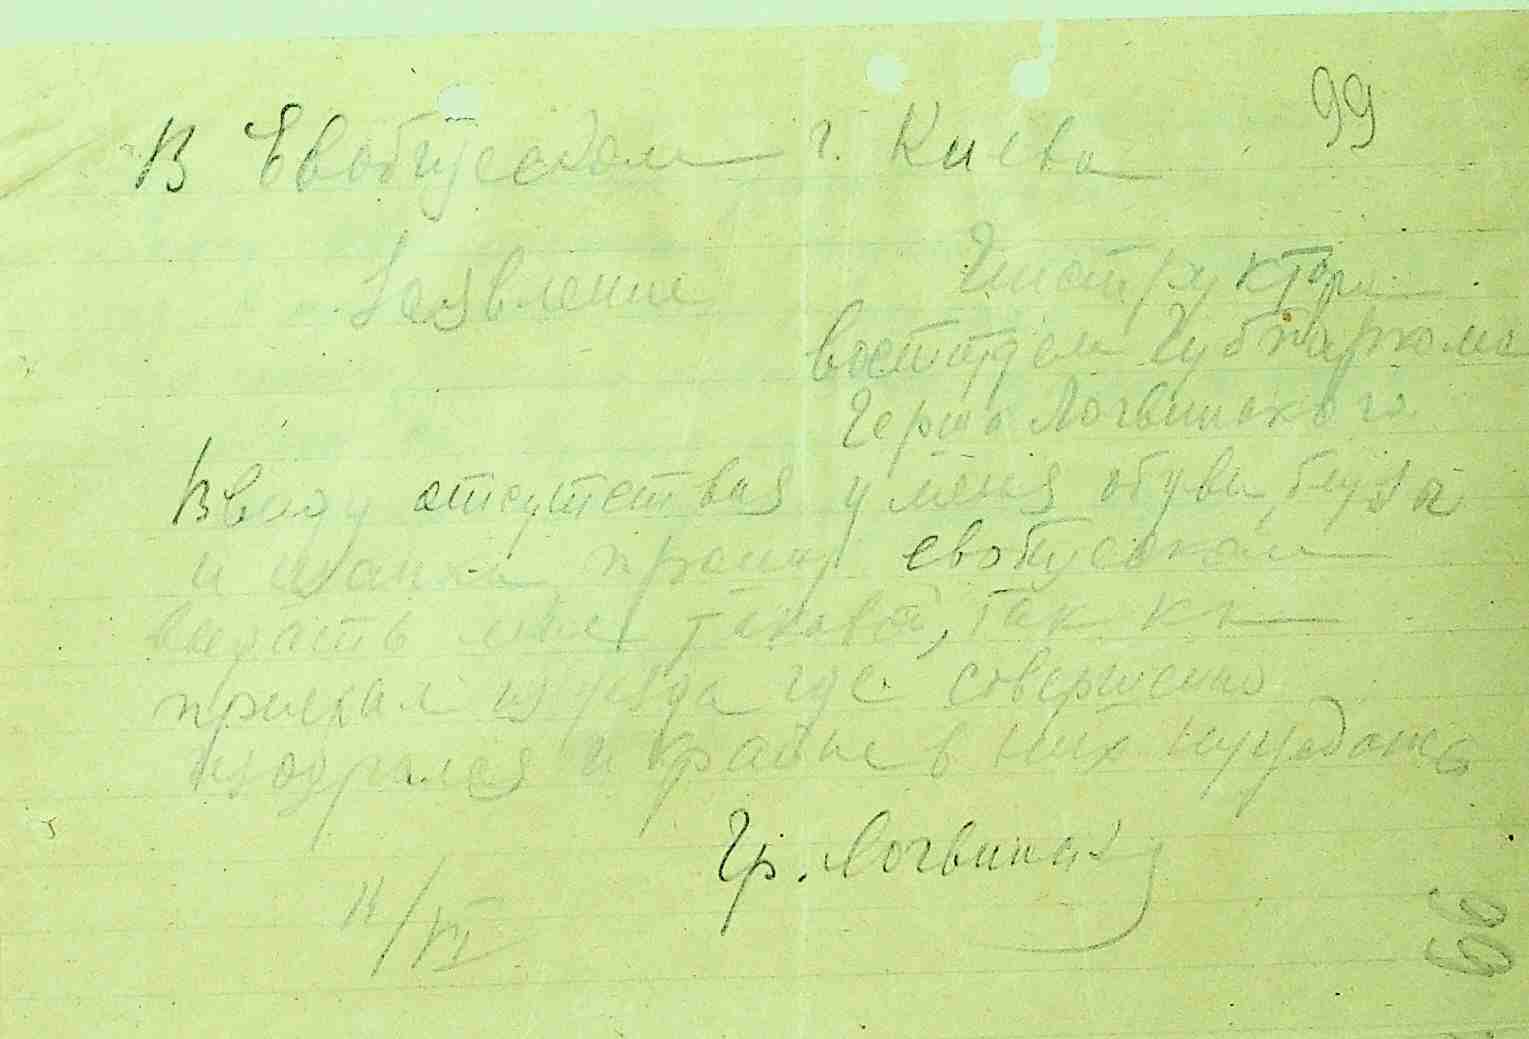 99
В Евобщеском г. Киева
Заявление
Инструктора
Губпаркома
Герша Логвинского
Ввиду отсутствия у меня обуви, блузы
и шапки прошу евобщеском
выдать мне таковые, так как
приехал из уезда где совершенно
изодрался и крайне в них нуждаюсь
Гр. Логвинский
11/VI